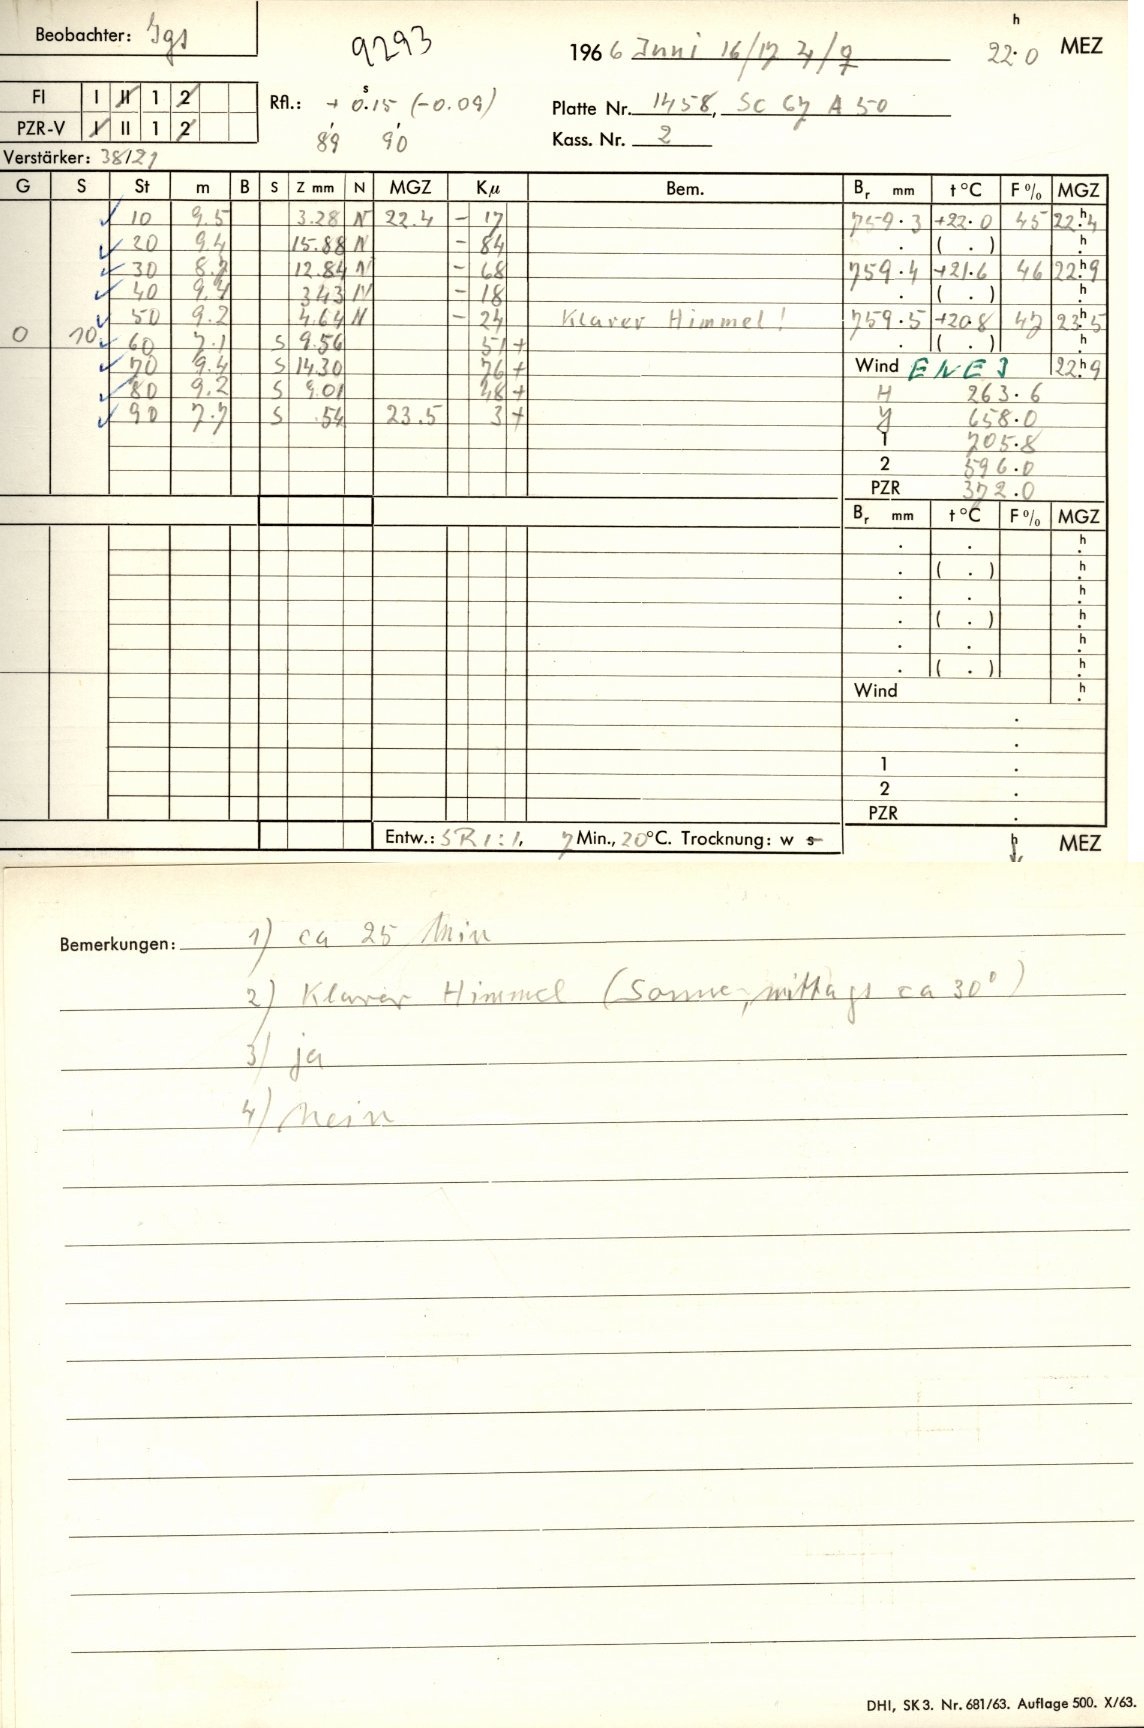 Beobachter: Jgs
9293
1966 Juni 16/17 4/7 22.0 h MEZ
FI I II 1 2
PZR-V I II 1 2
Rfl.: + 0.15 s (-0.09)
89 90
Platte Nr. 1458, Sc 67 A 50
Kass. Nr. 2
Verstärker: 38/21
G S St m B S Z mm N MGZ Kμ Bem. Br mm t °C F % MGZ
10 9.5 3.28 N 22.4 - 17 759.3 +22.0 45 22.h4
20 9.4 15.88 N - 84 . ( . ) h
30 8.7 12.84 N - 68 759.4 +21.6 46 22.h9
40 9.4 3.43 N - 18 . ( . ) h
50 9.2 4.64 N - 24 Klarer Himmel! 759.5 +20.8 47 23.h5
0 10 60 7.1 S 9.56 51 + . ( . ) h
70 9.4 S 14.30 76 + Wind ENE 3 22.h9
80 9.2 S 9.01 48 + H 263.6
90 7.7 S .54 23.5 3 + Y 658.0
1 705.8
2 596.0
PZR 372.0
Br mm t °C F % MGZ
. . h
. ( . ) h
. . h
. ( . ) h
. . h
. ( . ) h
Wind h
.
.
1 .
2 .
PZR .
Entw.: SR 1:1, 7 Min., 20 °C. Trocknung: w s h MEZ
Bemerkungen: 1) ca 25 Min
2) Klarer Himmel (Sonne, mittags ca 30°)
3) ja
4) Nein
DHI, SK 3. Nr. 681/63. Auflage 500. X/63.